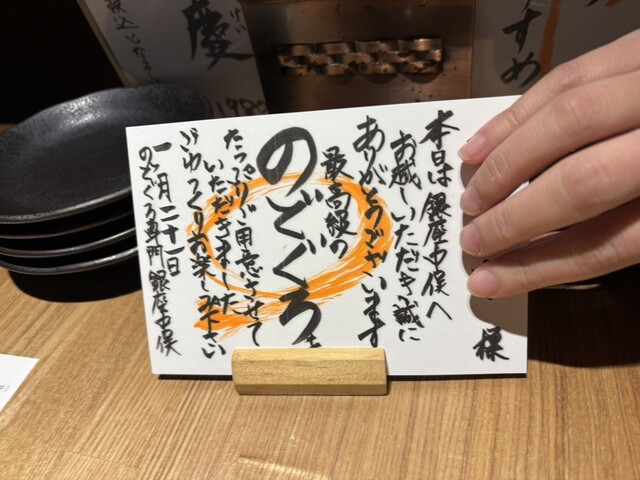 様
本日は銀座中俣へ
お越しいただき誠に
ありがとうございます
最高級の
のどぐろを
たっぷりご用意させて
いただきました
ごゆっくりお楽しみ下さい
一月二十一日
のどぐろ専門 銀座中俣
慶
けい
1980
すめ